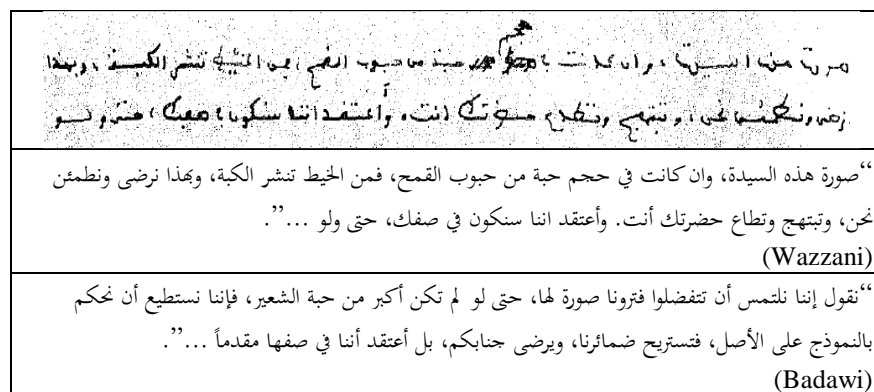 صورة هذه السيدة، وان كانت في حجم حبة من حبوب القمح، فمن الخيط تنشر الكبة، وبهذا
نرضى ونطمئن نحن، وتبتهج وتطاع حضرتك أنت. وأعتقد اننا سنكون في صفك، حتى ولو
“صورة هذه السيدة، وان كانت في حجم حبة من حبوب القمح، فمن الخيط تنشر الكبة، وبهذا نرضى ونطمئن
نحن، وتبتهج وتطاع حضرتك أنت. وأعتقد اننا سنكون في صفك، حتى ولو …”.
(Wazzani)
“نقول إننا نلتمس أن تتفضلوا فترونا صورة لها، حتى لو لم تكن أكبر من حبة الشعير، فإننا نستطيع أن نحكم
بالنموذج على الأصل، فتستريح ضمائرنا، ويرضى جنابكم، بل أعتقد أننا في صفها مقدماً …”.
(Badawi)